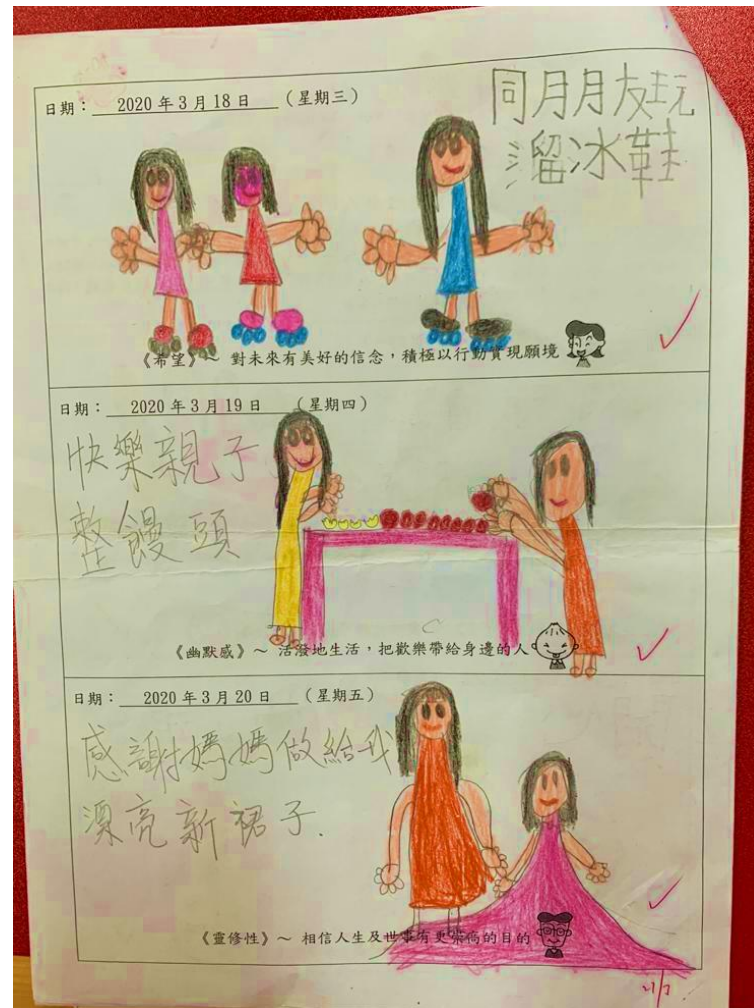 日期：2020年3月18日（星期三）
同月月友玩
溜冰鞋
《希望》～ 對未來有美好的信念，積極以行動實現願境
日期：2020年3月19日（星期四）
快樂親子
整饅頭
《幽默感》～ 活潑地生活，把歡樂帶給身邊的人
日期：2020年3月20日（星期五）
感謝媽媽做給我
漂亮新裙子.
《靈修性》～ 相信人生及世事有更崇高的目的